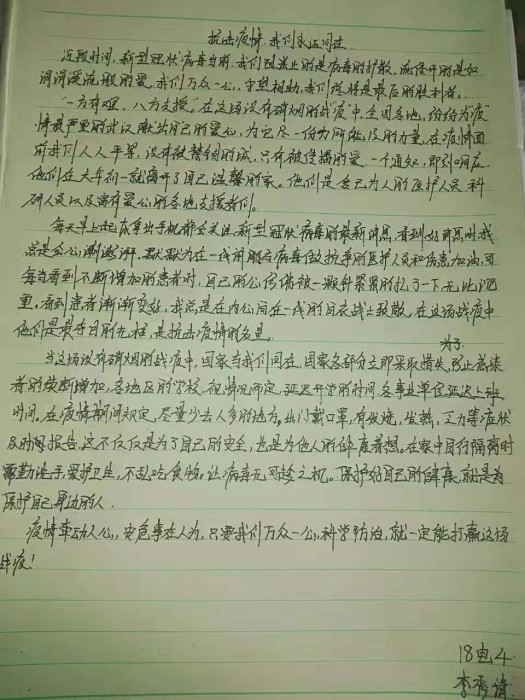 抗击疫情,我们永远同在
近段时间,新型冠状病毒当前,我们阻止的是病毒的扩散,流传开的是如
涓涓溪流般的爱,我们万众一心,守望相助,我们终将是最后的胜利者。
“一方有难,八方支援”在这场没有硝烟的战疫中,全国各地,纷纷为疫
情最严重的武汉献出自己的爱心,为它尽一份力所能及的力量,在疫情面
前我们人人平等,没有被封锁的城,只有被传播的爱,一个通知,即刻响应,
他们在大年初一就离开了自己温馨的家。他们是舍己为人的医护人员,科
研人员以及富有爱心的各地支援者们。
每天早上起床拿出手机都会关注,新型冠状病毒的最新消息,看到好消息时,我
总是会心潮澎湃,默默为在一线并肩与病毒做抗争的医护人员和病患加油,可
每当看到不断增加的患者时,自己的心仿佛被一颗针紧紧的扎了一下
里。看到患者渐渐变好,我总是在内心向在一线的白衣战士致敬,在这场战疫中
他们是最夺目的光柱,是抗击疫情的名星。
当这场没有硝烟的战疫中,国家与我们同在,国家各部分立即采取措失,为了防止感染
者的续断增加,各地区的学校,视情况而定,延迟开学的时间,各事业单位延迟上班
时间。在疫情期间规定,尽量少去人多的地方。出门戴口罩,有咳嗽,发热,乏力等症状
及时报告,这不仅仅是为了自己的安全,也是为他人的健康着想。在家中自行隔离时
需勤洗手,爱护卫生,不乱吃食物。让病毒无可趁之机。保护好自己的健康,就是为
保护自己身边的人。
疫情牵动人心,安危事在人为,只要我们万众一心,科学防治,就一定能打赢这场
战疫!
18电4
李秀倩